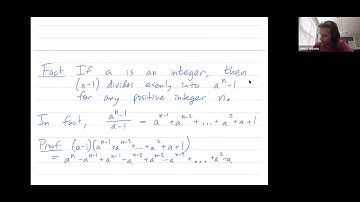 Fact If a is an integer, then
(a-1) divides evenly into aⁿ-1
for any positive integer n.
In fact, (aⁿ-1)/(a-1) = aⁿ⁻¹+aⁿ⁻²+...+a²+a+1
Proof (a-1)(aⁿ⁻¹+aⁿ⁻²+...+a²+a+1)
= aⁿ-aⁿ⁻¹+aⁿ⁻¹-aⁿ⁻²+aⁿ⁻²-aⁿ⁻³+...+a²-a